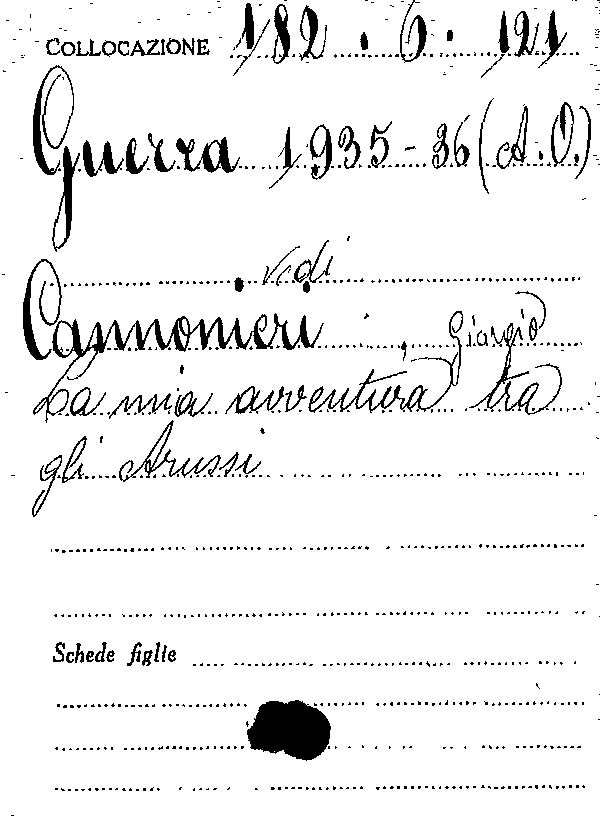 COLLOCAZIONE 182.6.121
Guerra 1935-36 (A.O.)
vedi
Cannonieri, Giorgio
La mia avventura tra
gli Arussi
Schede figlie